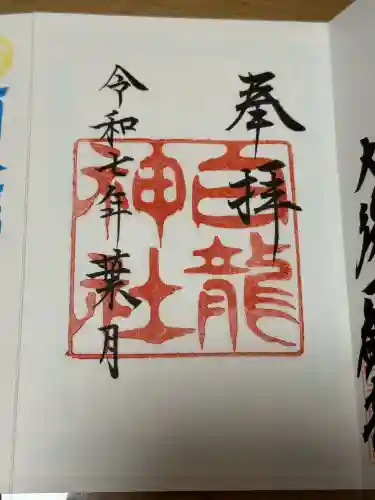 奉拝
白龍
神社
令和七年葉月